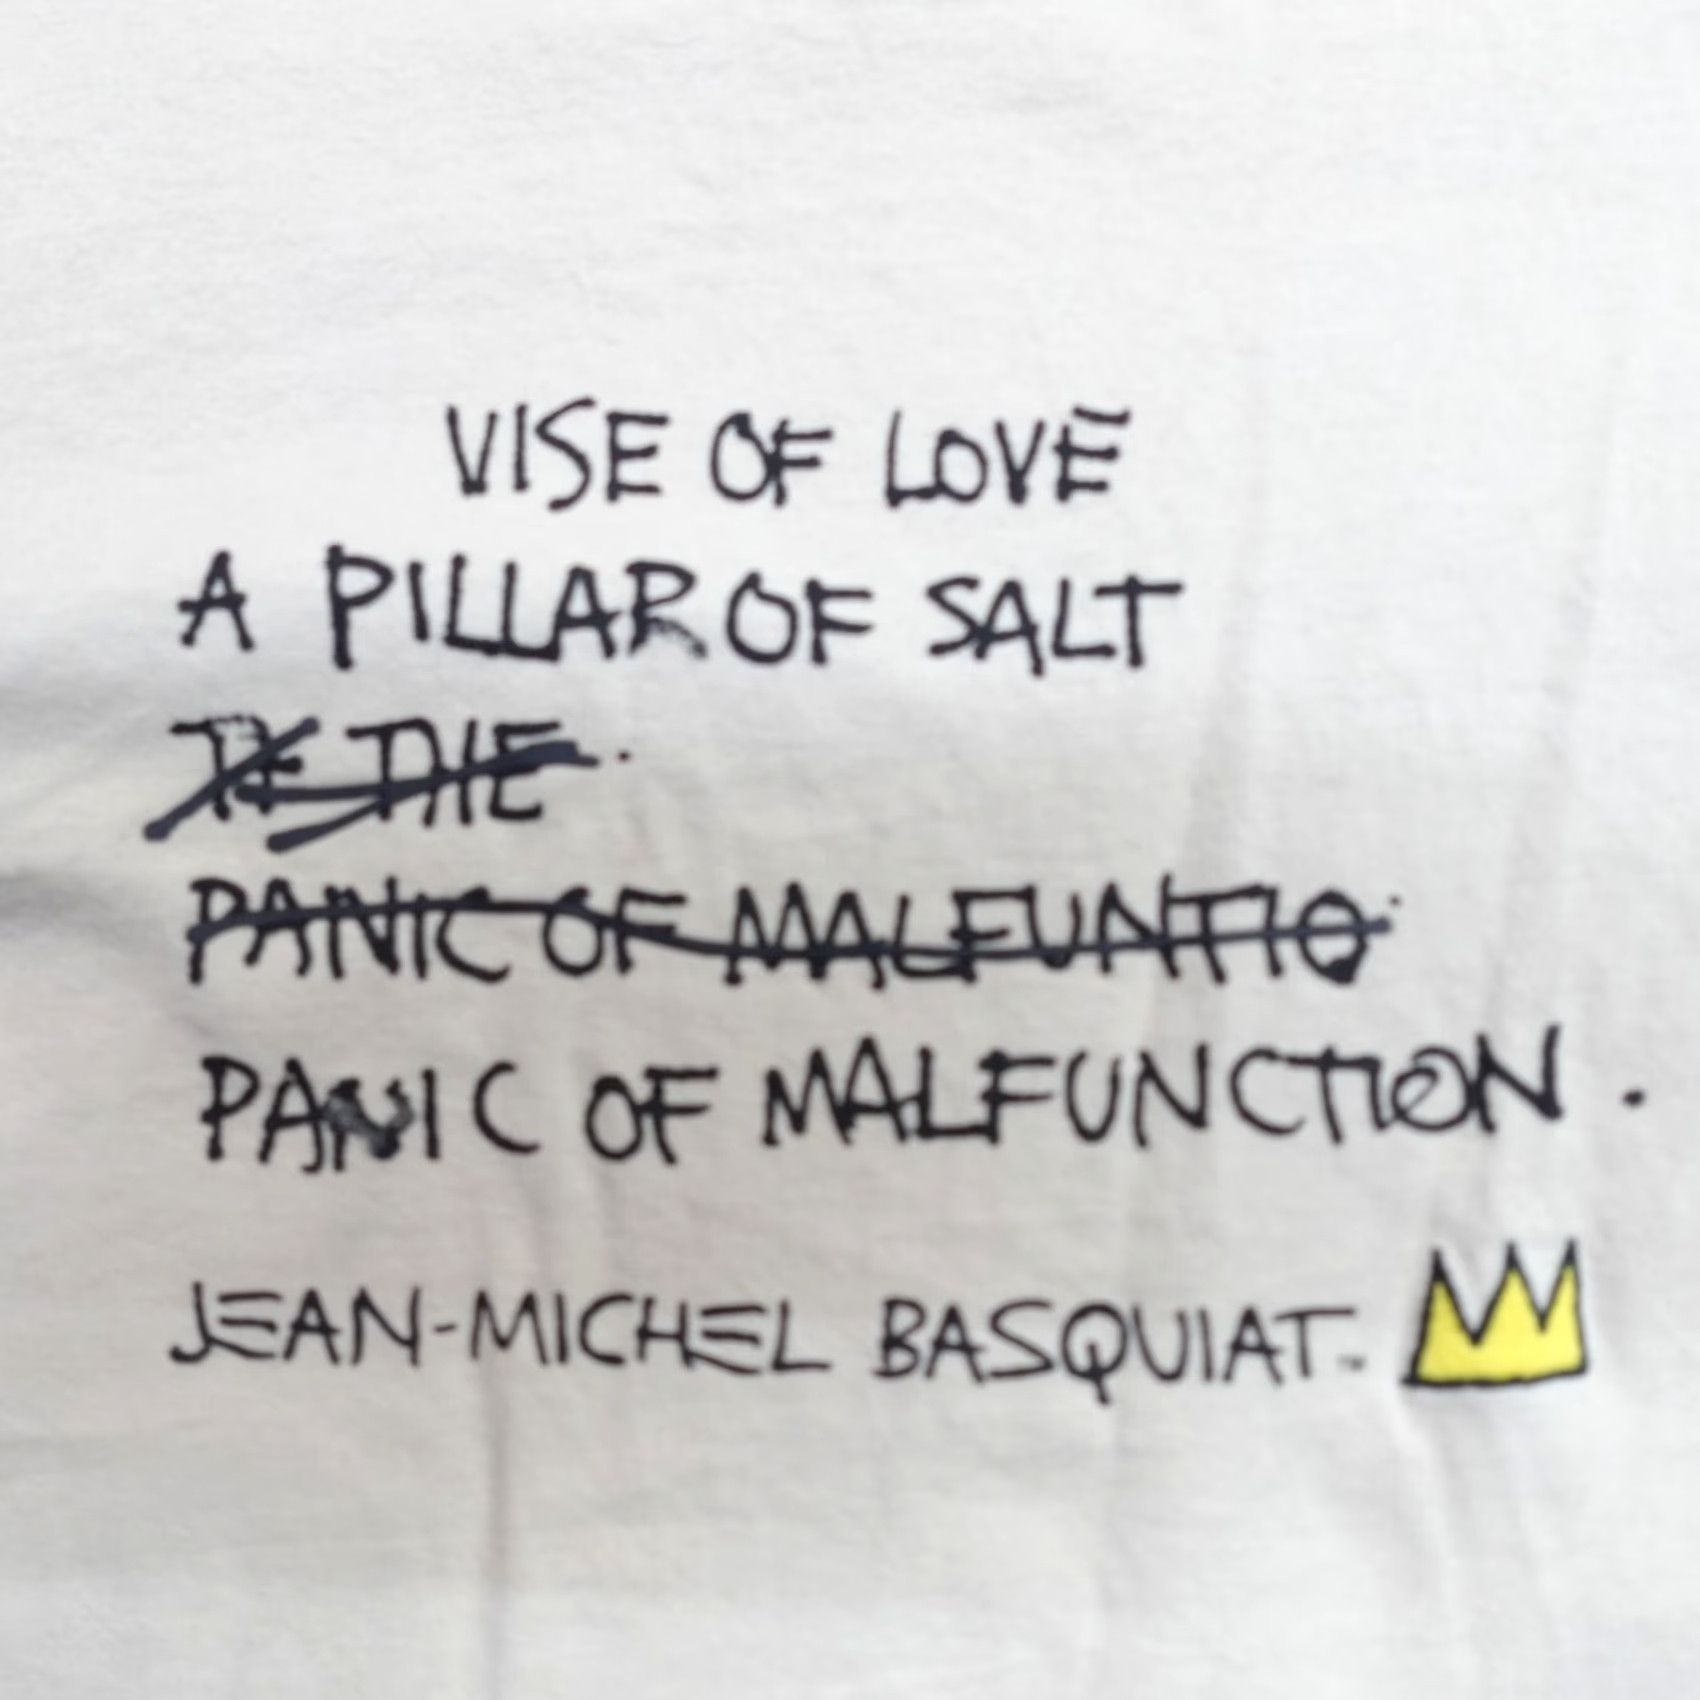 VISE OF LOVE
A PILLAR OF SALT
PANIC OF MALFUNTIO
PANIC OF MALFUNCTION.
JEAN-MICHEL BASQUIAT™